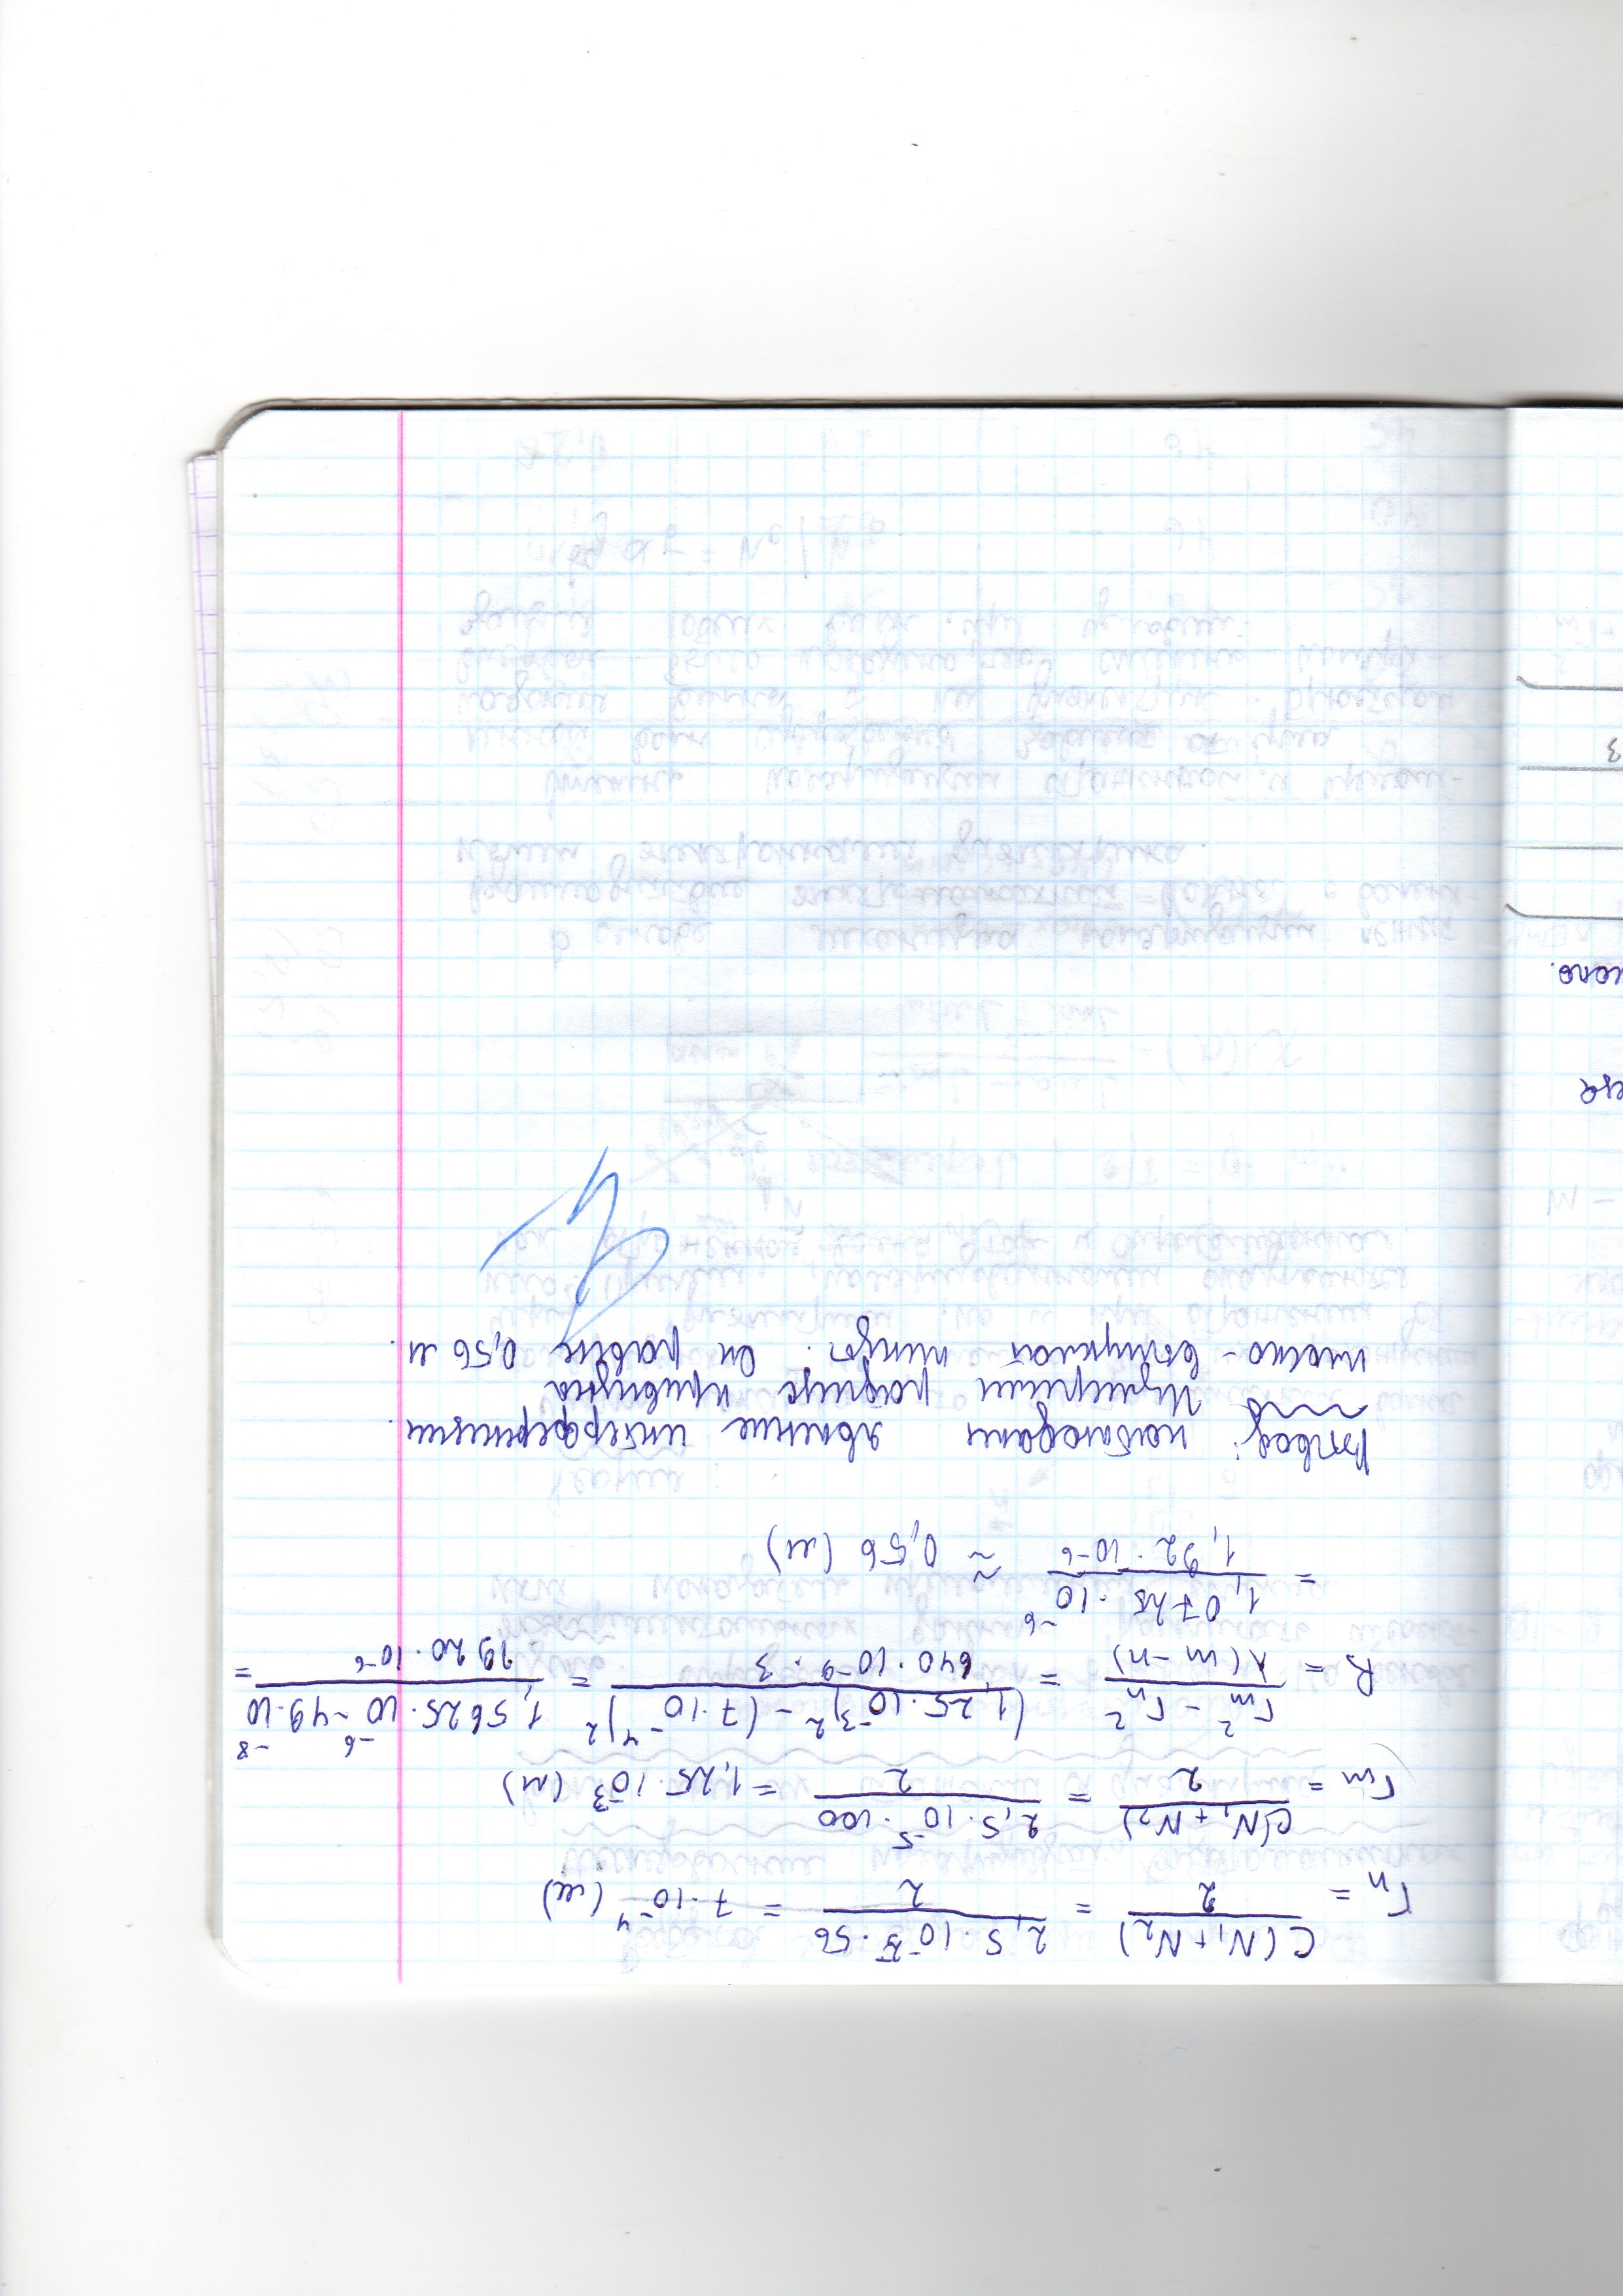 rₙ = C(N₁+N₂)/2 = 2,5·10⁻⁵·56/2 = 7·10⁻⁴ (м)
rₘ = C(N₁+N₂)/2 = 2,5·10⁻⁵·100/2 = 1,25·10⁻³ (м)
R = rₘ² - rₙ²/λ(m-n) = (1,25·10⁻³)² - (7·10⁻⁴)²/640·10⁻⁹·3 = 1,5625·10⁻⁶ - 49·10⁻⁸/1920·10⁻⁶ =
= 1,0725·10⁻⁶/1,92·10⁻⁶ ≈ 0,56 (м)
Вывод: наблюдали явление интерференции.
Измерили радиус кривизны
плоско-выпуклой линзы. Он равен 0,56 м.
3